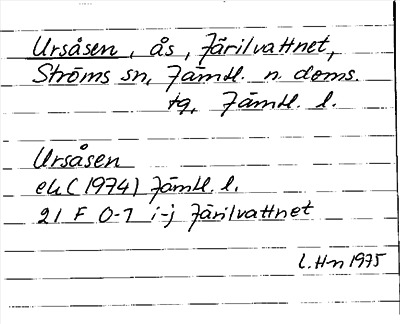 Ursåsen, ås, Järilvattnet,
Ströms sn, Jämtl. n. doms.
tg, Jämtl. l.
Ursåsen
ek (1974) Jämtl. l.
21 F 0-1 i-j Järilvattnet
L. H-n 1975